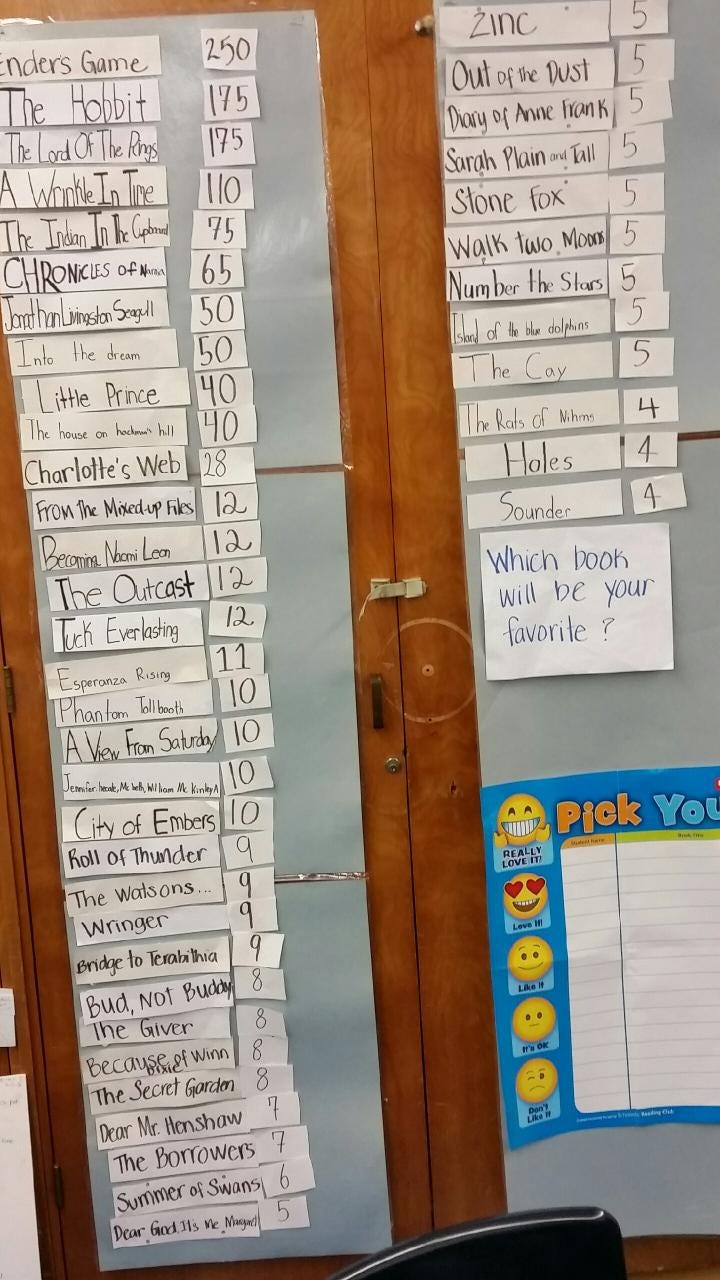 Ender's Game 250
The Hobbit 175
The Lord Of The Rings 175
A Wrinkle In Time 110
The Indian In The Cupboard 75
CHRONICLES of Narnia 65
Jonathan Livingston Seagull 50
Into the dream 50
Little Prince 40
The house on hackman's hill 40
Charlotte's Web 28
From the Mixed-up Files 12
Becoming Naomi Leon 12
The Outcast 12
Tuck Everlasting 12
Esperanza Rising 11
Phantom Tollbooth 10
A View From Saturday 10
Jennifer, hecate, Mc beth, William Mc Kinley 10
City of Embers 10
Roll of Thunder 9
The Watsons... 9
Wringer 9
Bridge to Terabithia 9
Bud, Not Buddy 8
The Giver 8
Because of Winn Dixie 8
The Secret Garden 8
Dear Mr. Henshaw 7
The Borrowers 7
Summer of Swans 6
Dear God. It's Me Margaret 5
Zinc 5
Out of the Dust 5
Diary of Anne Frank 5
Sarah Plain and Tall 5
Stone Fox 5
Walk two Moons 5
Number the Stars 5
Island of the blue dolphins 5
The Cay 5
The Rats of Nihms 4
Holes 4
Sounder 4
Which book
will be your
favorite ?
Pick You
Student Name Book Title
REALLY
LOVE IT!
Love It!
Like It
It's OK
Don't
Like It
Scholastic Reading Club